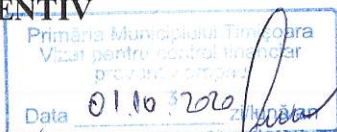 ENTIV
Primăria Municipiului Timișoara
Viza pentru control financiar
preventiv propriu
3
Data 01.10.2020 zi/lună/an